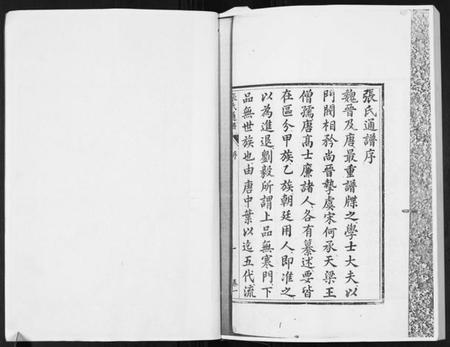 張氏通譜序
魏晉及唐最重譜牒之學士大夫以
門閥相矜尚晉摯虞宋何承天梁王
僧孺唐高士廉諸人各有纂述要皆
在區分甲族乙族朝廷用人即准之
以為進退劉毅所謂上品無寒門下
品無世族也由唐中葉以迄五代流
張氏通譜 序 一
1